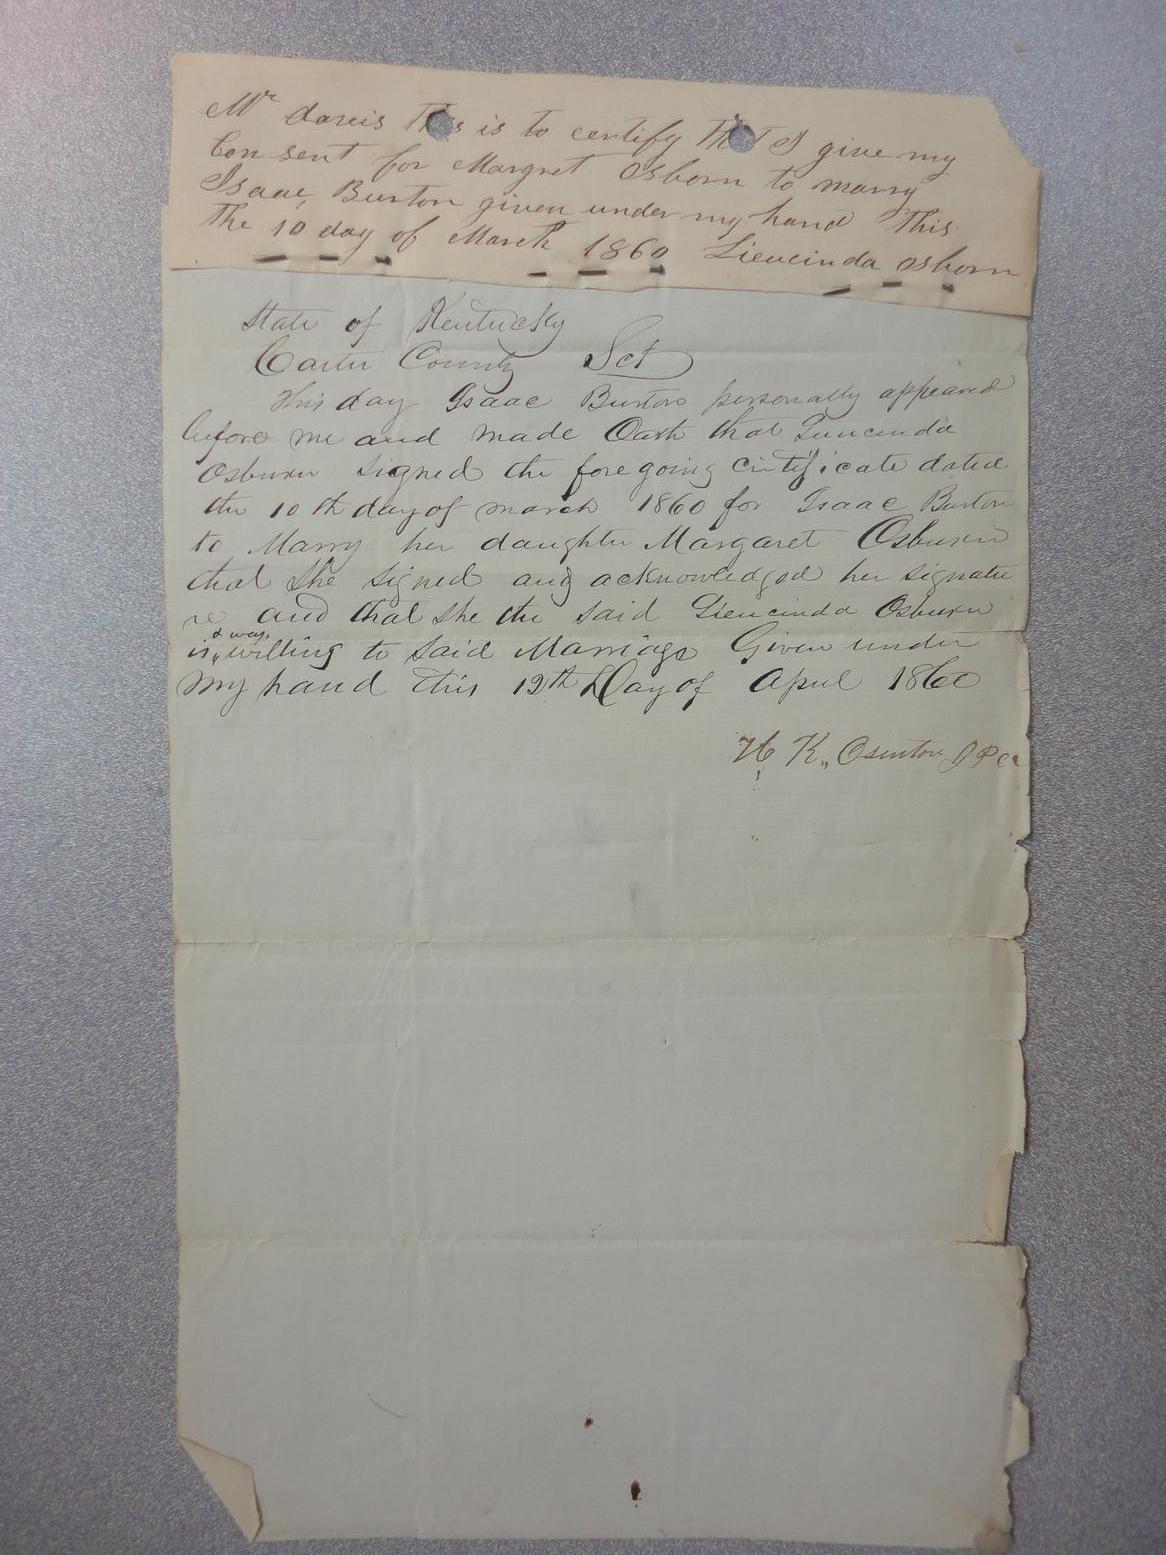 Mr dareis This is to certify That I give my
Consent for Margret Osborn to marry
Isaac, Burton given under my hand This
The 10 day of March 1860 Lieucinda osborn
State of Kentucky
Carter County Sct
This day Isaac Burton personally appeared
before me and made Oath that Lieucinda
Osburn signed the fore going cirtificate dated
the 10th day of march 1860 for Isaac Burton
to Marry her daughter Margaret Osburn
that She signed and acknowledged her signatu
re and that She the said Lieucinda Osburn
is & was willing to said Marriage Given under
my hand this 12th Day of April 1860
H. K. Osenton J P C C